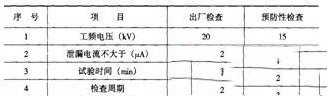 序 号 项 目 出厂检查 预防性检查
1 工频电压（kV） 20 15
2 泄漏电流不大于（μA） 2
3 试验时间（min） 2
4 检查周期 2